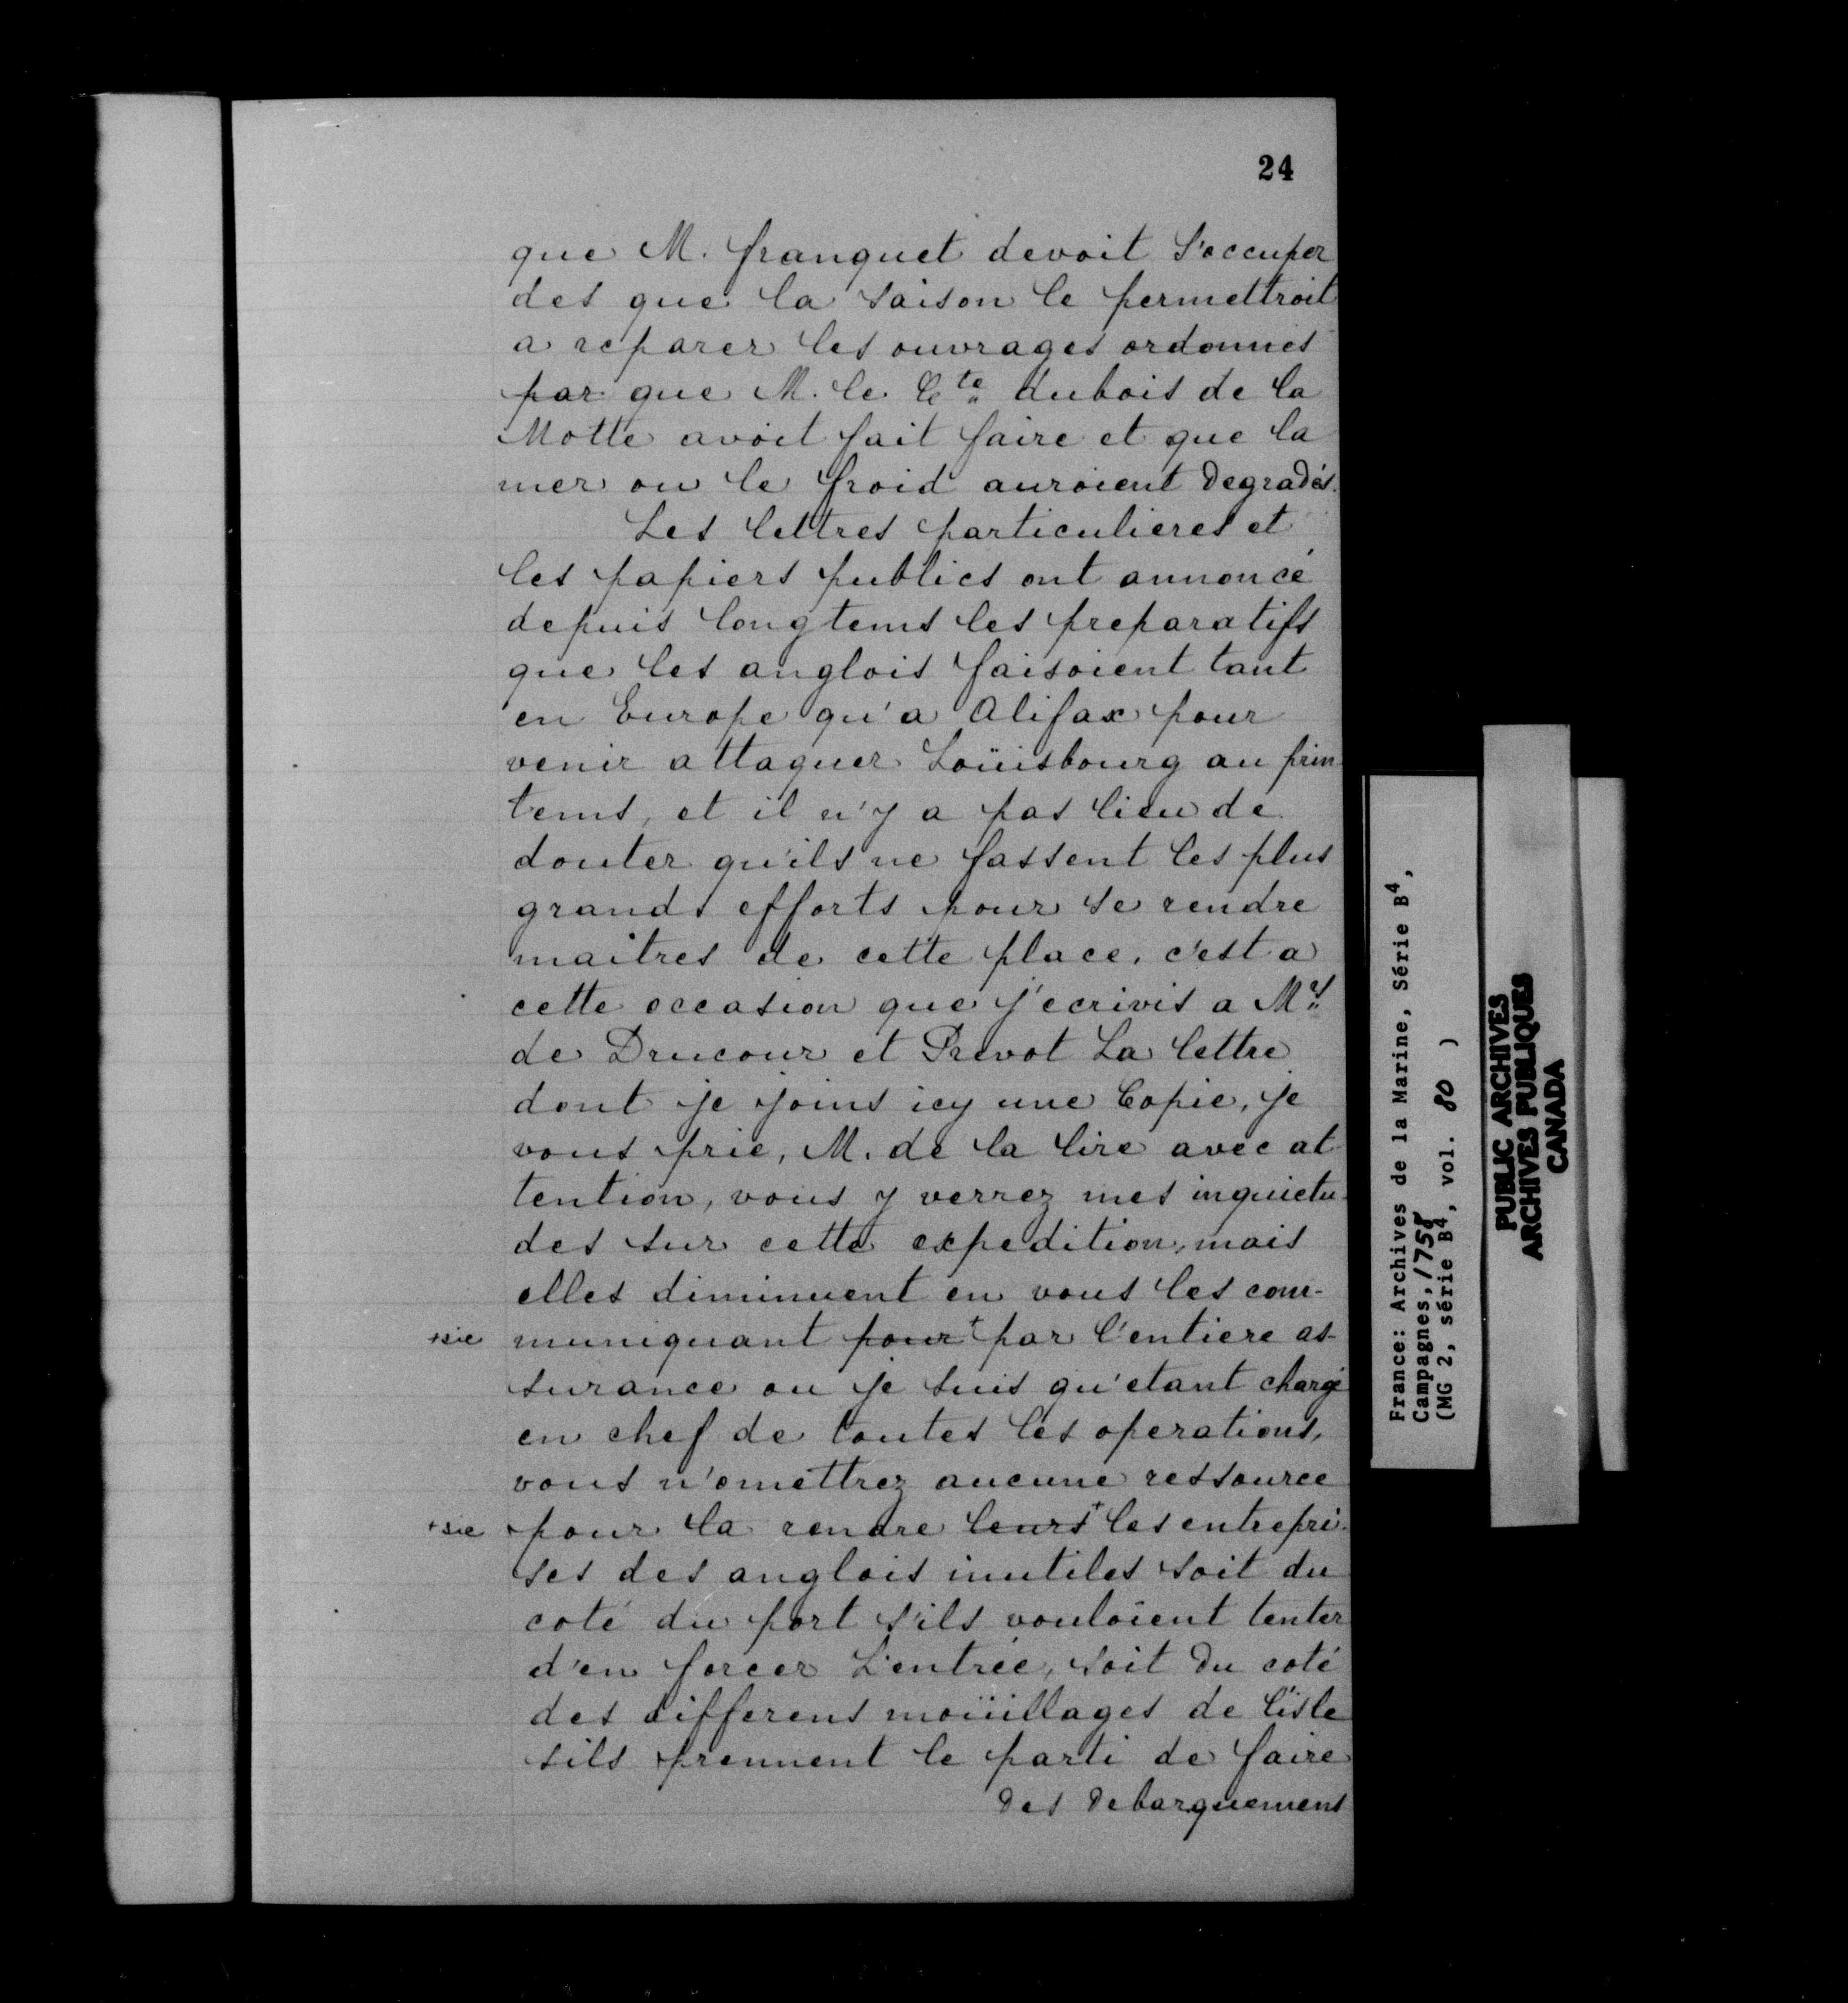 24
que M. franquet devoit s'occuper
des que la saison le permettroit
a reparer les ouvrages ordonnés
par que M. le Cte dubois de la
Motte avoit fait faire et que la
mer ou le froid auroient degradés.
Les lettres particulieres et
les papiers publics ont annoncé
depuis longtems les preparatifs
que les anglois faisoient tant
en Europe qu'a Alifax pour
venir attaquer Loüisbourg au prin
tems, et il n'y a pas lieu de
douter qu'ils ne fassent les plus
grands efforts pour se rendre
maitres de cette place, c'est a
cette occasion que j'ecrivis a Mrs
de Drucour et Prevot La lettre
dont je joins icy une Copie, je
vous prie, M. de la lire avec at-
tention, vous y verrez mes inquietu-
des sur cette expedition, mais
elles diminuent en vous les com-
+sic muniquant pour+ par l'entiere as-
surance ou je suis qu'etant chargé
en chef de toutes les operations,
vous n'omettrez aucune ressource
+sic pour la rendre leurs+ les entrepri-
ses des anglois inutiles soit du
coté du port s'ils vouloient tenter
d'en forcer L'entrée, soit du coté
des differens moüillages de l'isle
sils prennent le parti de faire
des debarquemens
France: Archives de la Marine, Série B4,
Campagnes, 1758
(MG 2, série B4, vol. 80 )
PUBLIC ARCHIVES
ARCHIVES PUBLIQUES
CANADA